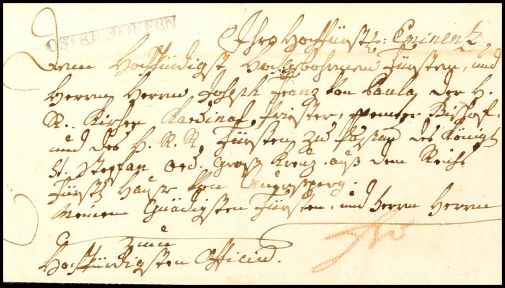 OSTERHOFEN
Ihro Hochfürstl: Eminenz
Dem Hochwürdigst Hochgebohrnen Fürsten, und
Herrn Herrn Joseph Franz von Paula, der H.
R. Kirchen Kardinal Priester, Bischof
und des H. R. R. Fürsten zu Passau des Königl
St. Stephan Ord. Groß Kreuz. auß dem Reichs
Fürstl Hause von Auersperg.
Meinem Gnädigsten Fürsten, und Herrn Herrn
zum
Hochwürdigsten Officio.